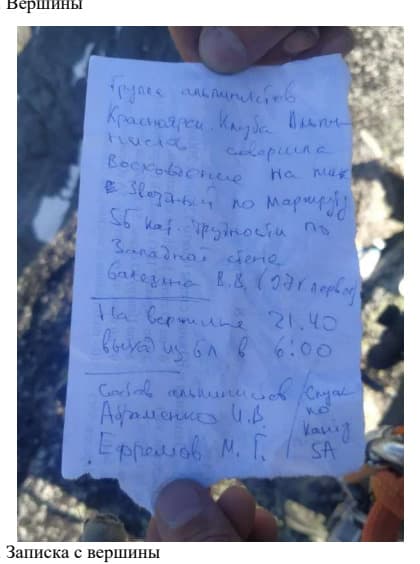 Вершины
Группа альпинистов
Красноярск. Клуба Альпи-
нистов совершила
Восхождение на пик
Звездный по маршруту
5Б кат. трудности по
Западной стене
В.В. (97г. первов)
На вершине 21.40
выход из бл в 6:00
Состав альпинистов
Абраменко И.В.
Ефремов М. Г.
Спуск
по
5А
Записка с вершины